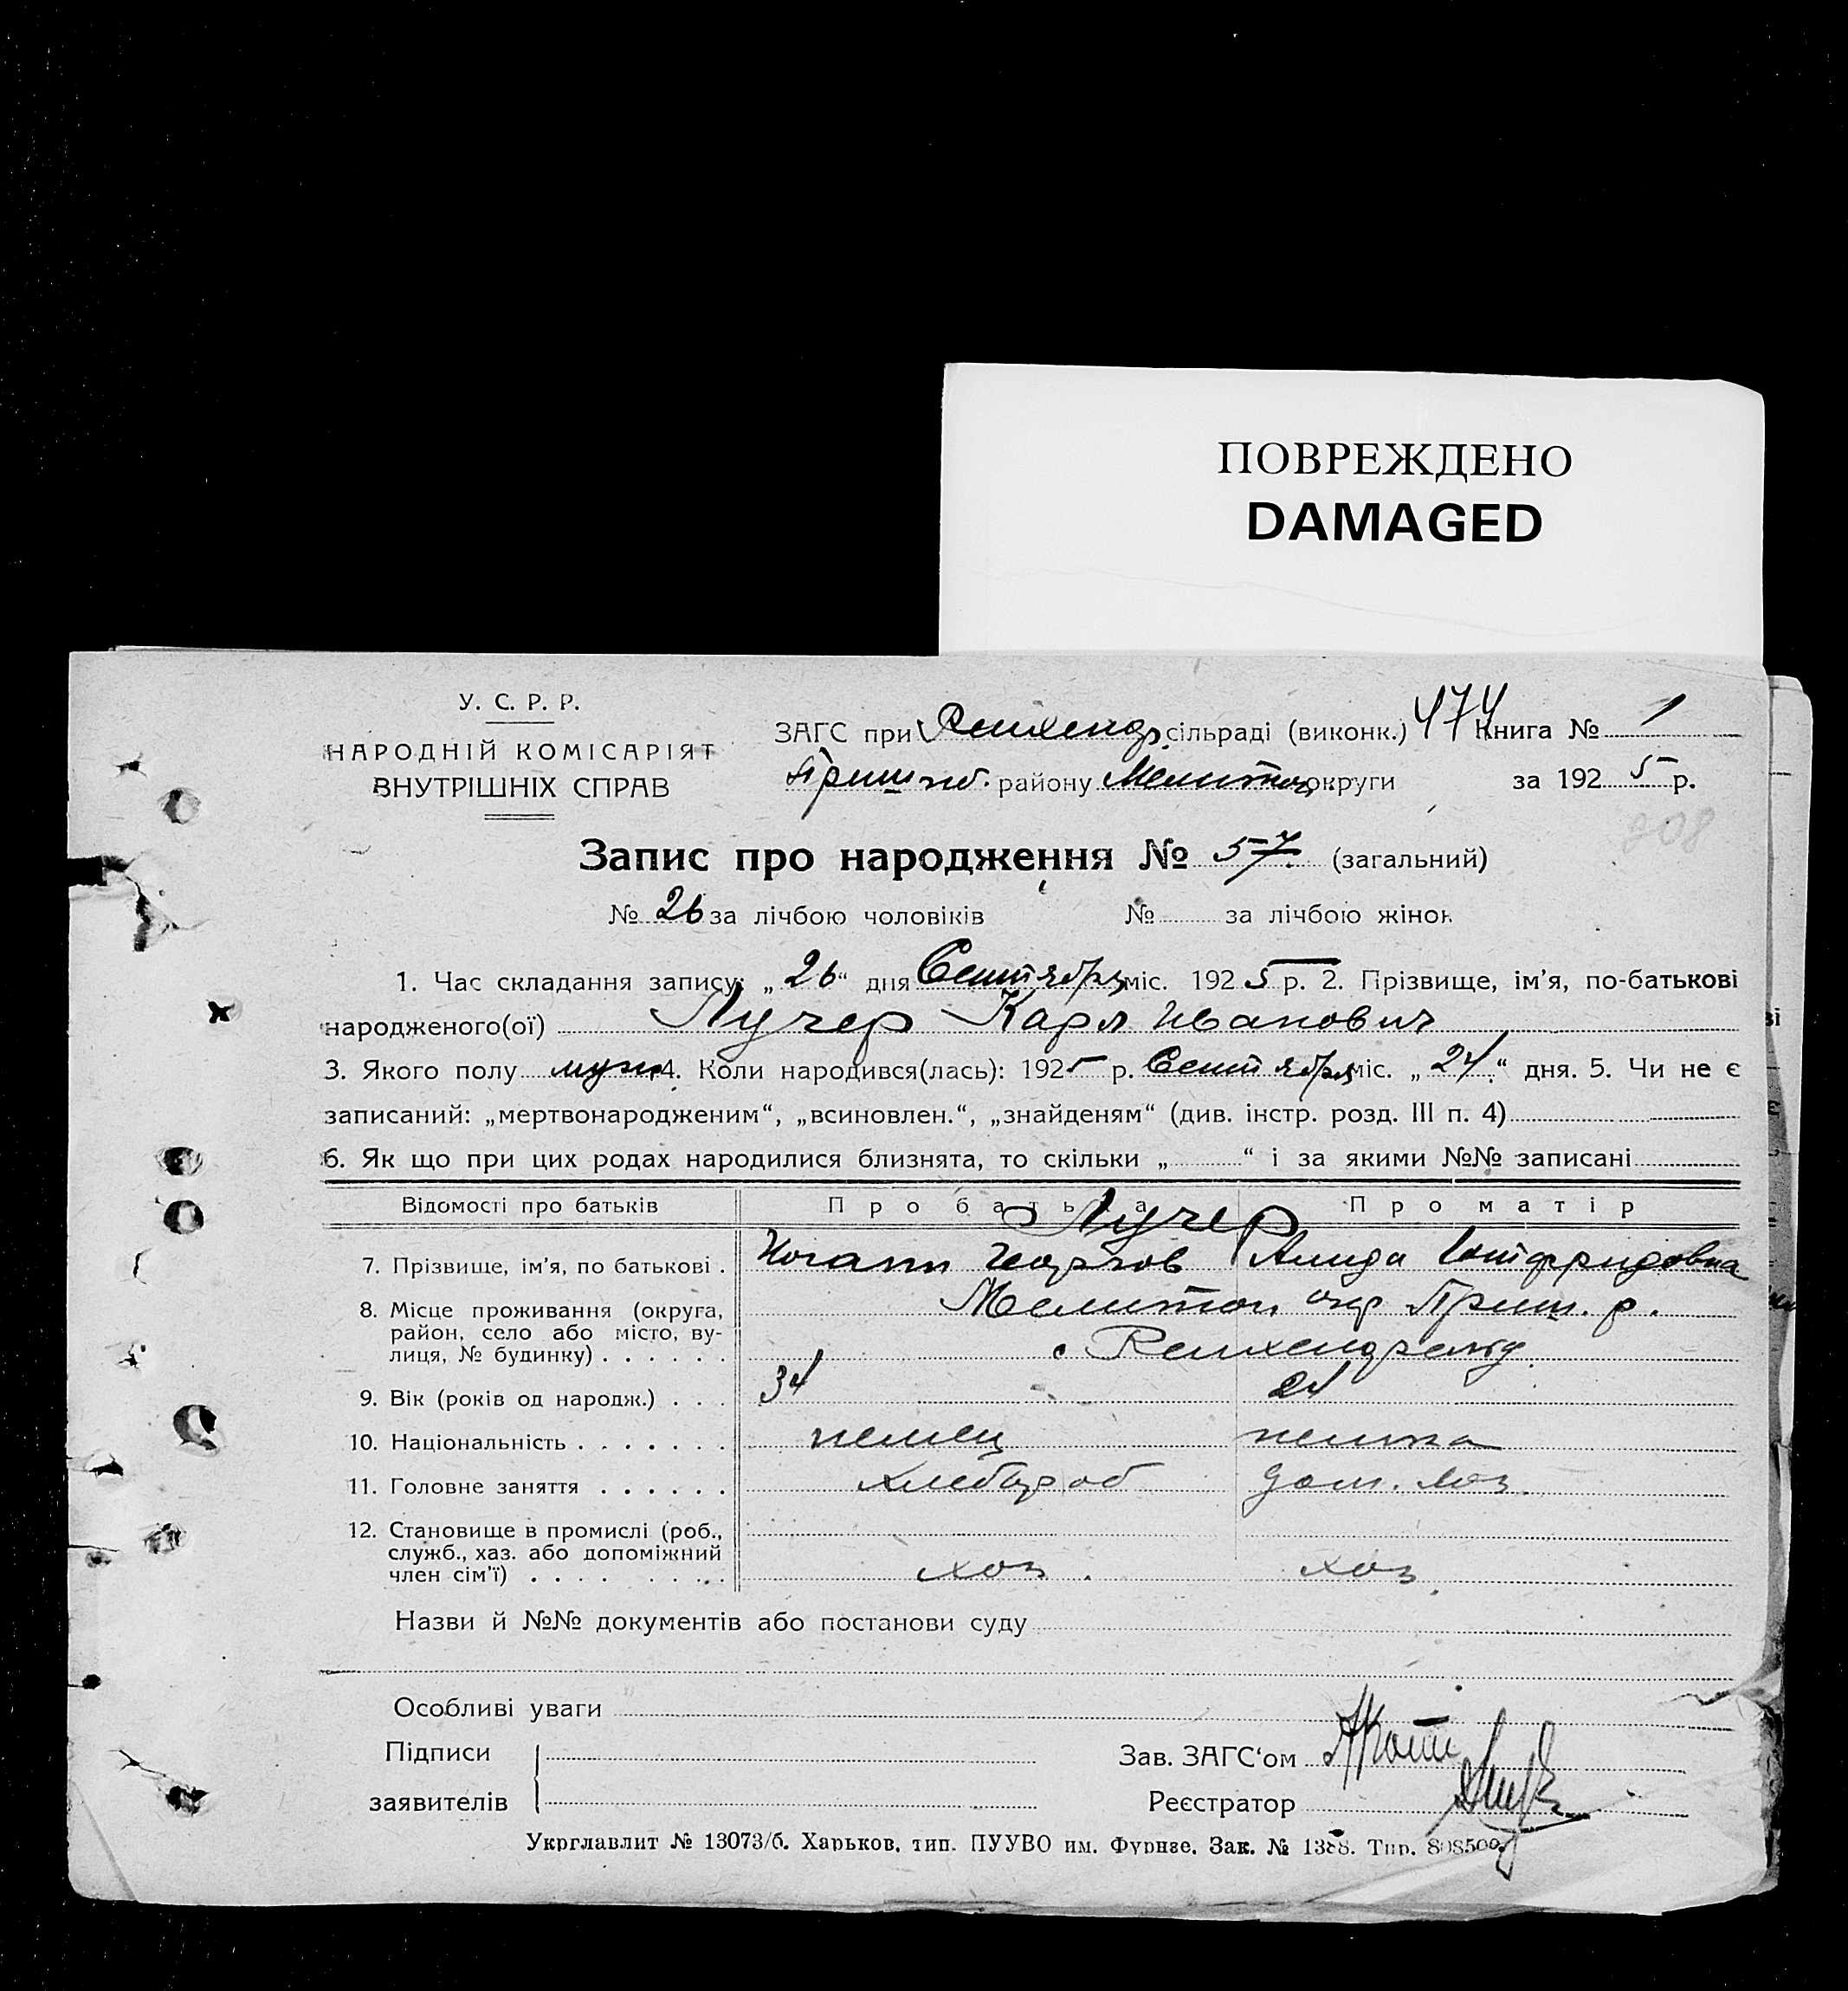 ПОВРЕЖДЕНО
DAMAGED
У. С. Р. Р.
НАРОДНІЙ КОМІСАРІЯТ
ВНУТРІШНІХ СПРАВ
ЗАГС при Рейхенф. сільраді (виконк.) 474 Книга № 1
Пришиб. району Мелитоп. округи за 1925 р.
208
Запис про народження № 57 (загальний)
№ 26 за лічбою чоловіків № за лічбою жінок
1. Час складання запису: „26“ дня Сентября міс. 1925 р. 2. Прізвище, ім'я, по-батькові
народженого(ої) Лучер Карл Иванович
3. Якого полу муж. 4. Коли народився(лась): 1925 р. Сентября міс. „24“ дня. 5. Чи не є
записаний: „мертвонародженим“, „всиновлен.“, „знайденям“ (див. інстр. розд. III п. 4)
6. Як що при цих родах народилися близнята, то скільки „ “ і за якими №№ записані
Відомості про батьків Про батька Про матір
Лучер
7. Прізвище, ім'я, по батькові . Иоганн Георгов Алида Готфридовна
8. Місце проживання (округа, Мелитоп. окр Приш. р.
район, село або місто, ву-
лиця, № будинку) . . . . . . с Рейхенфельд.
9. Вік (років од народж.) . . . 34 24
10. Національність . . . . . . . немец немка
11. Головне заняття . . . . . . хлебороб дом. хоз.
12. Становище в промислі (роб.,
служб., хаз. або допоміжний
член сім'ї) . . . . . . . . . хоз. хоз.
Назви й №№ документів або постанови суду
Особливі уваги
Підписи
Зав. ЗАГС‘ом
заявителів
Реєстратор
Укрглавлит № 13073/б. Харьков, тип. ПУУВО им. Фрунзе. Зак. № 1388. Тир. 808500.